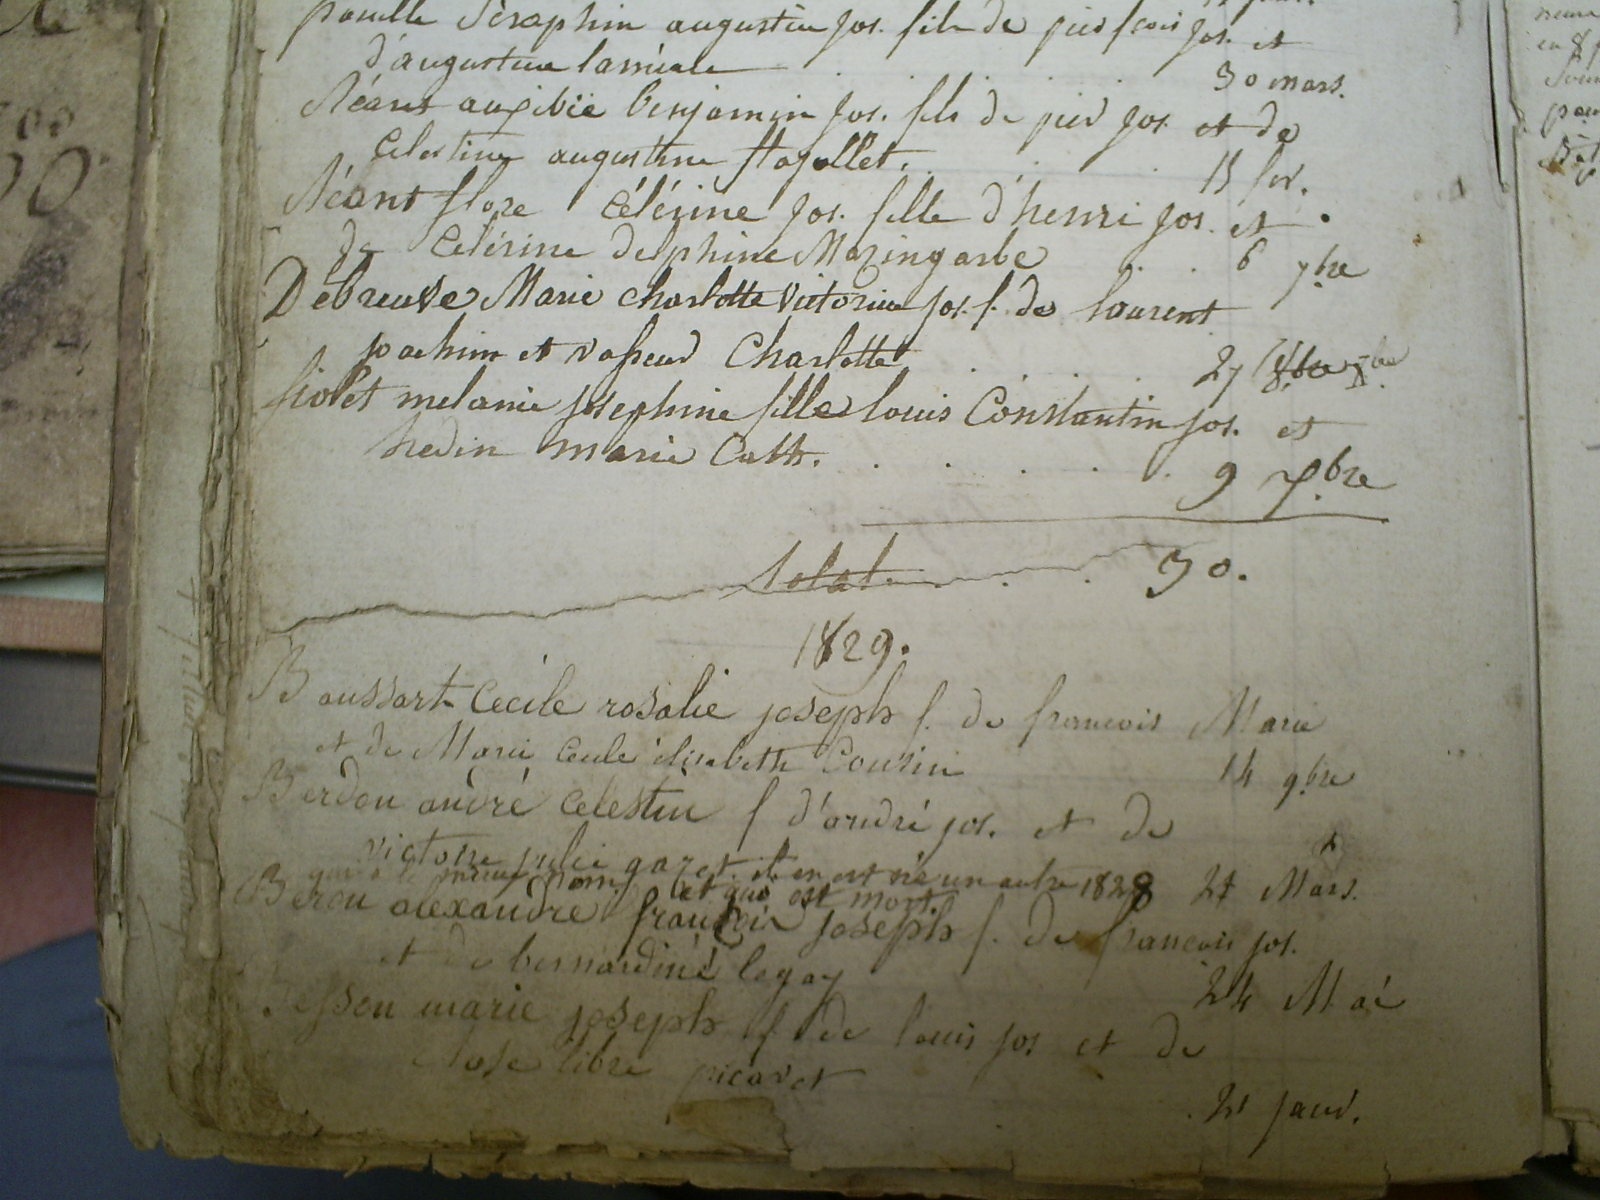 pouille Séraphin augustin jos. fils de pier fcois jos. et
d'augustine lamiale . . . . . 30 mars.
Néant benjamin jos. fils de pier jos. et de
Celestine augustine . . . 15 fév.
Néant flore Célérine jos. fille d'henri jos. et
de Célérine delphine Mazingarbe . . 6 7.bre
Debreuve Marie charlotte victorine jos. f. de laurent
joachim et vasseur Charlotte . . . . 27
fiolet melanie josephine fille louis Constantin jos. et
hedin marie Cath. . . . . . 9 7.bre
total. . . . 30.
1829.
Boussart Cecile rosalie joseph f. de francois Marie
et de Marie Cecile élisabeth Cousin 14 9.bre
Berdou andré Celestin f d'andré jos. et de
victoire julie gazet. il en est né un autre 1828 27 Mars.
qui a le même nom et qui est mort.
Berou alexandre francois joseph f. de francois jos.
et de bernardine legay 24 Mai
Besson marie joseph f. de louis jos et de
rose libre picavet
. 21 janv.